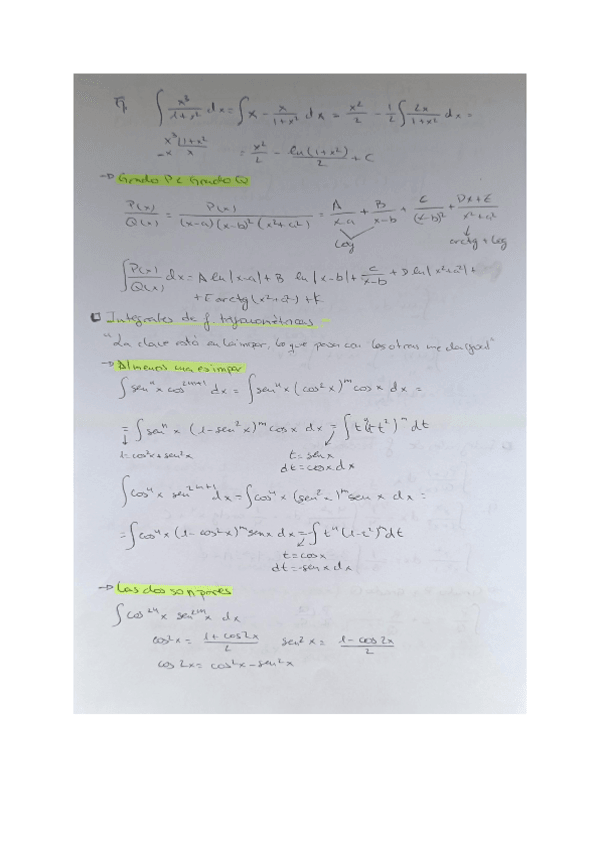 Ej. ∫ x³/(1+x²) dx = ∫ x - x/(1+x²) dx = x²/2 - 1/2 ∫ 2x/(1+x²) dx =
x³ |1+x²
-x x
= x²/2 - ln(1+x²)/2 + C
→ Grado P < Grado Q
P(x)/Q(x) = P(x)/((x-a)(x-b)²(x²+a²)) = A/(x-a) + B/(x-b) + C/(x-b)² + (Dx+E)/(x²+a²)
Log arctg + Log
∫ P(x)/Q(x) dx = A ln|x-a| + B ln|x-b| + C/(x-b) + D ln|x²+a²| +
+ E arctg(x²+a²) + K
Integrales de f. trigonométricas
"La clave está en la impar, lo que pasa con las otras me da igual"
→ Al menos una es impar
∫ senⁿx cos²ᵐ⁺¹ dx = ∫ senⁿx (cos²x)ᵐ cos x dx =
= ∫ senⁿx (1-sen²x)ᵐ cos x dx = ∫ tⁿ(1-t²)ᵐ dt
1=cos²x+sen²x t=senx
dt=cosx dx
∫ cosⁿx sen²ᵐ⁺¹ dx = ∫ cosⁿx (sen²x)ᵐ sen x dx =
= ∫ cosⁿx (1-cos²x)ᵐ senx dx = -∫ tⁿ(1-t²)ᵐ dt
t=cosx
dt=-senx dx
→ Las dos son pares
∫ cos²ⁿx sen²ᵐx dx
cos²x = (1+cos2x)/2 sen²x = (1-cos2x)/2
cos 2x = cos²x - sen²x